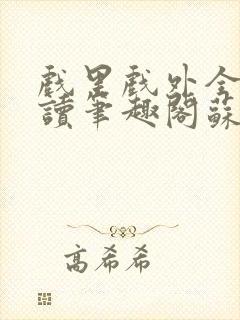 戲里戲外全
讀筆趣閣蘇
高希希